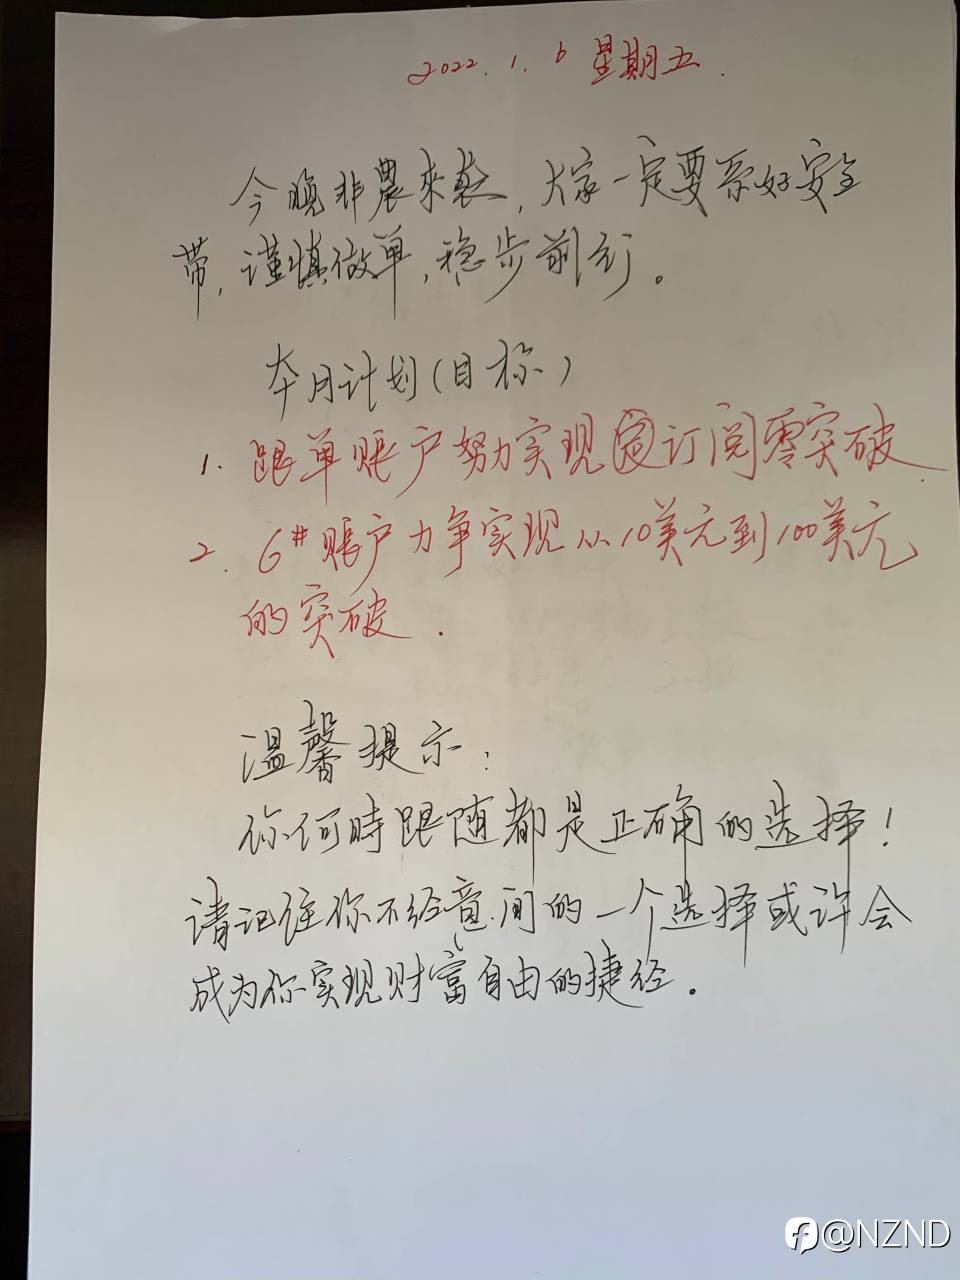 2022.1.6 星期五.
今晚非農來袭,大家一定要系好安全
带,谨慎做单,稳步前行。
本月计划(目称)
1. 跟单账户努力实现订阅零突破.
2. 6#账户力争实现从10美元到100美元
的突破.
温馨提示:
你何時跟随都是正确的选择!
请记住你不经意间的一个选择或许会
成为你实现财富自由的捷径。
@NZND